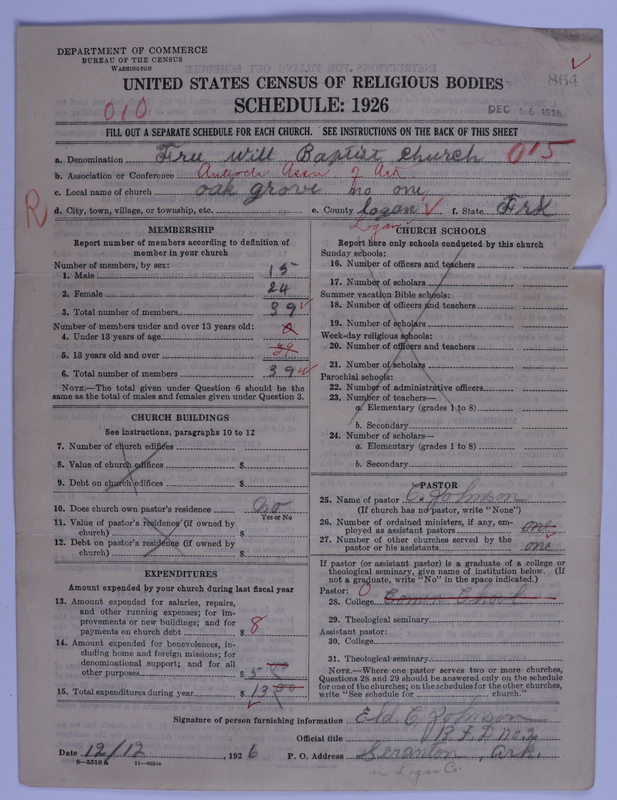 DEPARTMENT OF COMMERCE
BUREAU OF THE CENSUS
WASHINGTON
864
UNITED STATES CENSUS OF RELIGIOUS BODIES
SCHEDULE: 1926
010
DEC 16 1926
FILL OUT A SEPARATE SCHEDULE FOR EACH CHURCH. SEE INSTRUCTIONS ON THE BACK OF THIS SHEET
a. Denomination Free Will Baptist Church 015
b. Association or Conference Antioch Assn. of Ark
c. Local name of church oak grove no one
R
d. City, town, village, or township, etc. e. County Logan f. State Ark
Logan
MEMBERSHIP
Report number of members according to definition of member in your church
Number of members, by sex:
1. Male 15
2. Female 24
3. Total number of members 39
Number of members under and over 13 years old:
4. Under 13 years of age
5. 13 years old and over 39
6. Total number of members 39
NOTE.—The total given under Question 6 should be the same as the total of males and females given under Question 3.
CHURCH BUILDINGS
See instructions, paragraphs 10 to 12
7. Number of church edifices
8. Value of church edifices $
9. Debt on church edifices $
10. Does church own pastor's residence no
Yes or No
11. Value of pastor's residence (if owned by church) $
12. Debt on pastor's residence (if owned by church) $
EXPENDITURES
Amount expended by your church during last fiscal year
13. Amount expended for salaries, repairs, and other running expenses; for improvements or new buildings; and for payments on church debt $ 8
14. Amount expended for benevolences, including home and foreign missions; for denominational support; and for all other purposes $ 5 00
15. Total expenditures during year $ 13 00
CHURCH SCHOOLS
Report here only schools conducted by this church
Sunday schools:
16. Number of officers and teachers
17. Number of scholars
Summer vacation Bible schools:
18. Number of officers and teachers
19. Number of scholars
Week-day religious schools:
20. Number of officers and teachers
21. Number of scholars
Parochial schools:
22. Number of administrative officers
23. Number of teachers—
a. Elementary (grades 1 to 8)
b. Secondary
24. Number of scholars—
a. Elementary (grades 1 to 8)
b. Secondary
PASTOR
25. Name of pastor C. Johnson
(If church has no pastor, write "None")
26. Number of ordained ministers, if any, employed as assistant pastors one
27. Number of other churches served by the pastor or his assistants one
If pastor (or assistant pastor) is a graduate of a college or theological seminary, give name of institution below. (If not a graduate, write "No" in the space indicated.)
Pastor: 0
28. College
29. Theological seminary
Assistant pastor:
30. College
31. Theological seminary
NOTE.—Where one pastor serves two or more churches, Questions 28 and 29 should be answered only on the schedule for one of the churches; on the schedules for the other churches, write "See schedule for church."
Signature of person furnishing information Eld. C. Johnson
Official title
R.F.D. no. 2
Date 12/12, 1926 P. O. Address Scranton, Ark.
in Logan Co.
8—5518a 11—9084a